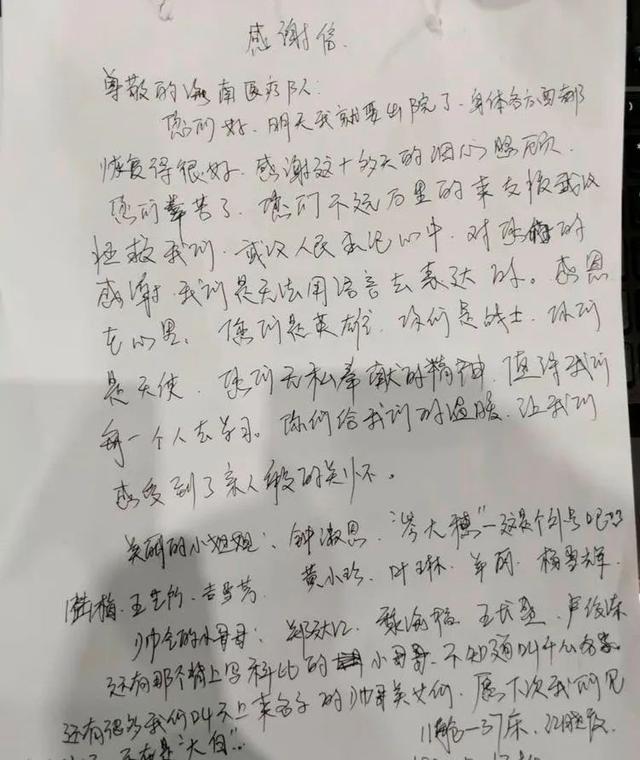 感谢信
尊敬的海南医疗队：
您们好、明天我就要出院了、身体各方面都
恢复得很好、感谢这十多天的细心照顾、
您们辛苦了、您们不远万里的来支援武汉
拯救我们、武汉人民永记心中、对你们的
感谢、我们是无法用语言去表达的。感恩
在心里、您们是英雄、你们是战士、你们
是天使、您们无私奉献的精神、值得我们
每一个人去学习。你们给我们的温暖、让我们
感受到了亲人般的关怀。
美丽的小姐姐：、钟淑恩、“岑大穗”—这是个外号吧
陆梅、王、黄小珍、叶琳、丽、杨雪辉、
帅气的小哥哥：郑、魏海、王、卢俊
还有那个背上写科比的小哥哥、不知道叫什么名字
还有很多我们叫不上来名字的帅哥美女们、愿下次我们见
是“大白”
11舱—37床、江